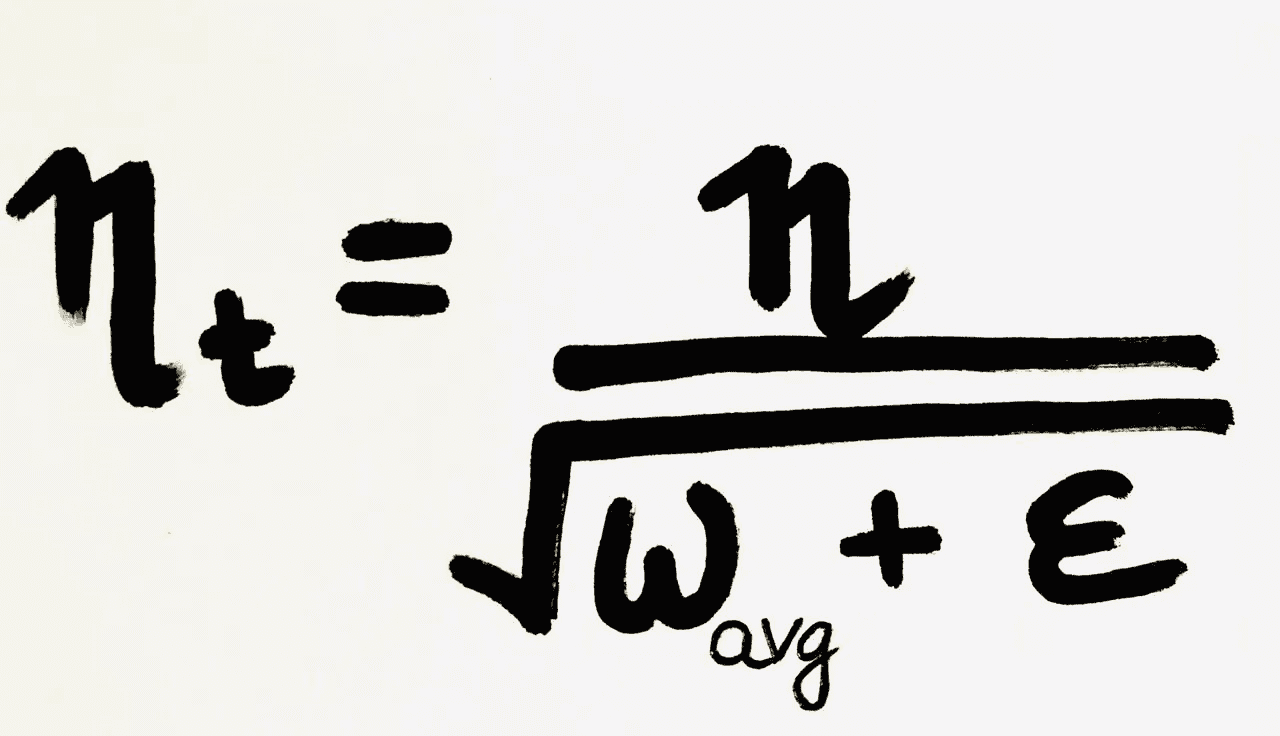 η_t = η / √(ω_avg + ε)